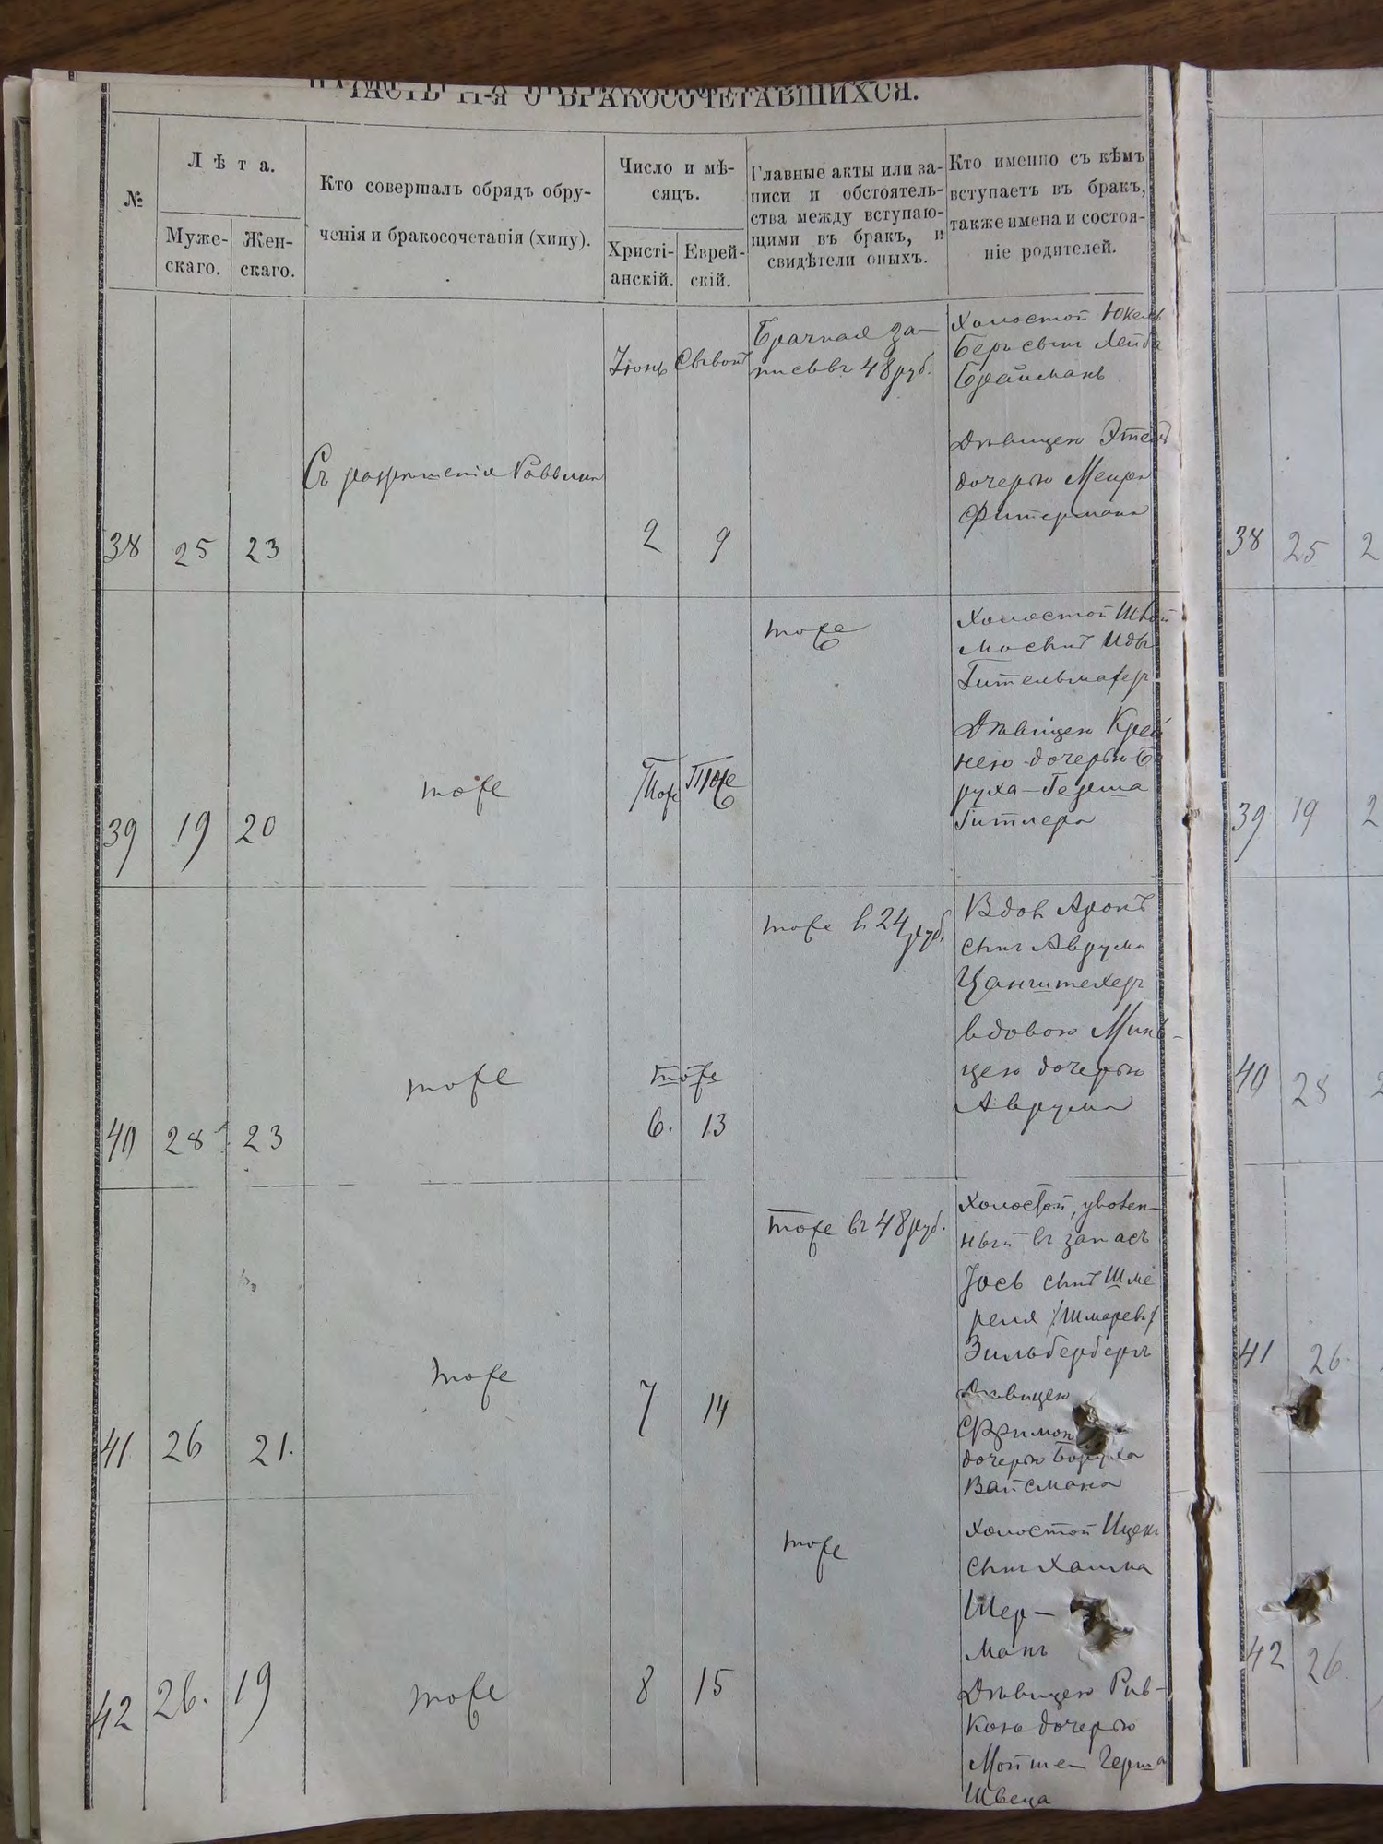 ЧАСТЬ II-я О БРАКОСОЧЕТАВШИХСЯ.
№
Лѣта.
Мужескаго.
Женскаго.
Кто совершалъ обрядъ обрученія и бракосочетанія (хипу).
Число и мѣсяцъ.
Христіанскій.
Еврейскій.
Главные акты или записи и обстоятельства между вступающими въ бракъ, и свидѣтели оныхъ.
Кто именно съ кѣмъ вступаетъ въ бракъ, также имена и состояніе родителей.
38
25
23
Съ разрѣшенія Раввина
Іюнь
2
9
Брачная за-
пись въ 48 руб.
Холостой
Лейба
Дѣвицею
дочерью
Фитермана
39
19
20
тоже
Тоже
Тоже
тоже
Холостой
сынъ
Дѣвицею
дочерью
Гитлера
40
28
23
тоже
тоже
6.
13
тоже в 24 руб.
Вдов Аронъ
сынъ Аврума
вдовою Минь-
цею дочерью
Аврума
41
26
21.
тоже
7
14
тоже въ 48 руб.
Холостой, уволен-
ный въ запасъ
Іось сынъ Шме
реля
Зильбербергъ
Дѣвицею
дочерью Боруха
Вайсмана
42
26.
19
тоже
8
15
тоже
Холостой Ицек
сынъ Хаима
Шер-
манъ
Дѣвицею Рив-
кою дочерью
Швеца
38
25
2
39
19
2
40
28
2
41
26.
42
26.